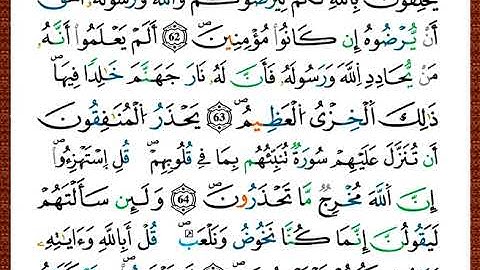 يَحْلِفُونَ بِاللَّهِ لَكُمْ لِيُرْضُوكُمْ وَاللَّهُ وَرَسُولُهُ أَحَقُّ
أَنْ يُّرْضُوهُ إِن كَانُوا مُؤْمِنِينَ ۝62 أَلَمْ يَعْلَمُوا أَنَّهُ
مَنْ يُّحَادِدِ اللَّهَ وَرَسُولَهُ فَأَنَّ لَهُ نَارَ جَهَنَّمَ خَالِدًا فِيهَا
ذَلِكَ الْخِزْيُ الْعَظِيمُ ۝63 يَحْذَرُ الْمُنَافِقُونَ
أَن تُنَزَّلَ عَلَيْهِمْ سُورَةٌ تُنَبِّئُهُم بِمَا فِي قُلُوبِهِمْ قُلِ اسْتَهْزِءُوا
إِنَّ اللَّهَ مُخْرِجٌ مَّا تَحْذَرُونَ ۝64 وَلَئِن سَأَلْتَهُمْ
لَيَقُولُنَّ إِنَّمَا كُنَّا نَخُوضُ وَنَلْعَبُ قُلْ أَبِاللَّهِ وَءَايَاتِهِ